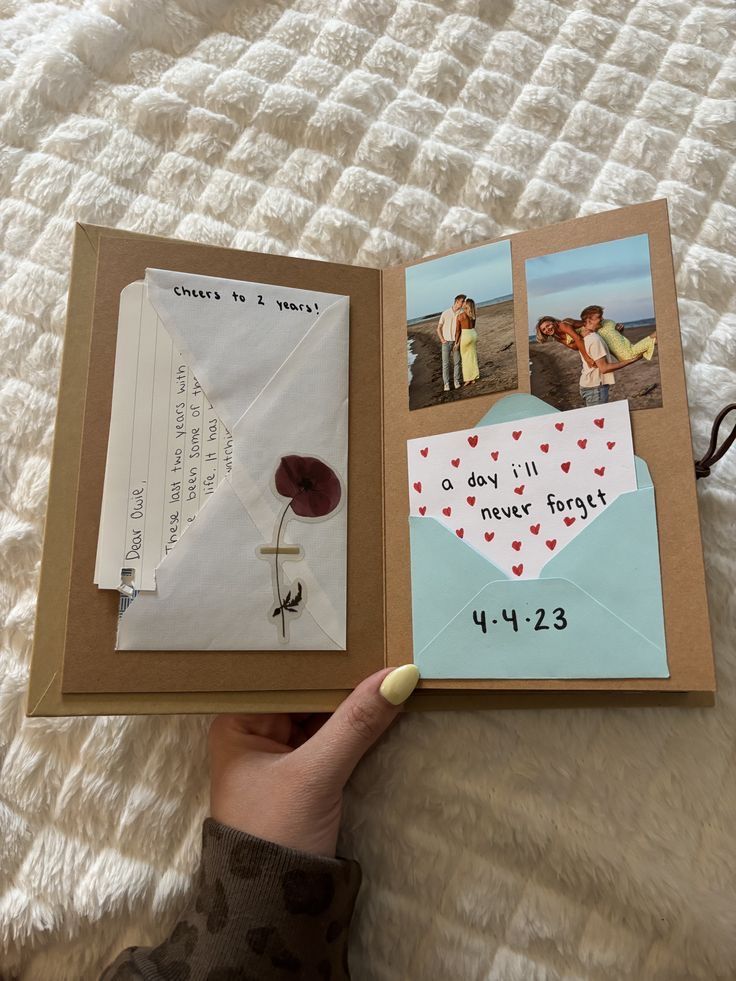 cheers to 2 years!
Dear Owie,
These last two years with
been some of th
life. It has
a day i'll
never forget
4·4·23